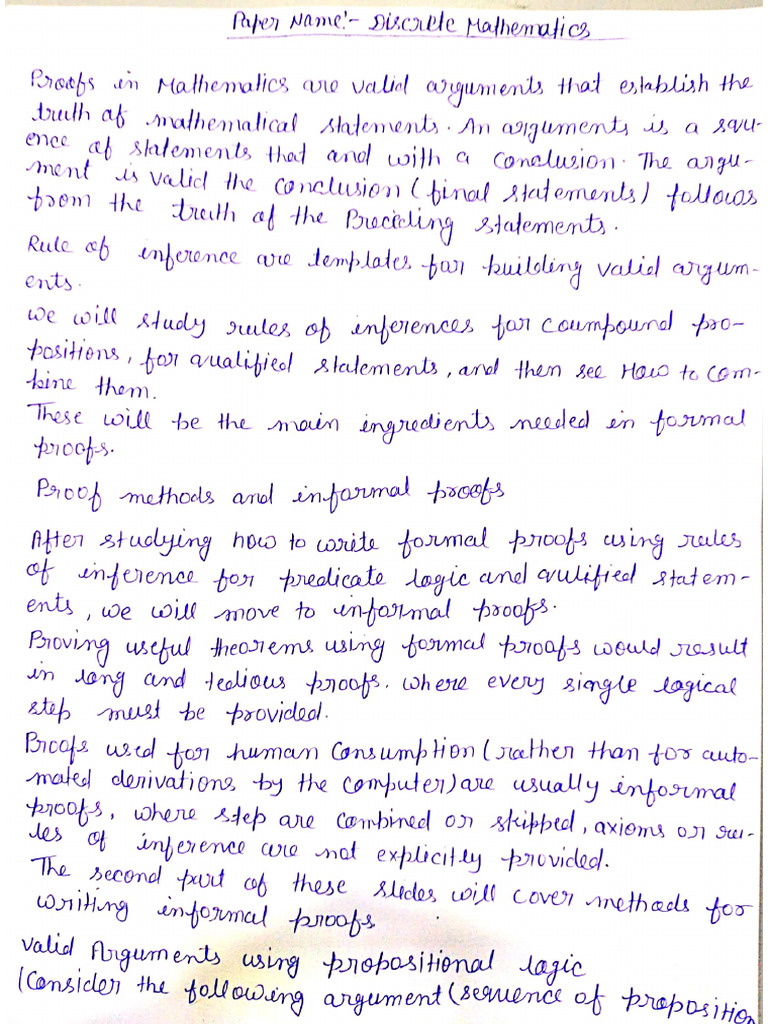 Paper Name:- Discrete Mathematics
Proofs in Mathematics are valid arguments that establish the
truth of mathematical statements. An arguments is a squ-
ence of statements that and with a conclusion. The argu-
ment is valid the conclusion (final statements) follows
from the truth of the Preceding statements.
Rule of inference are templates for building valid argum-
ents.
we will study rules of inferences for coumpound pro-
positions, for qualified statements, and then see How to com-
bine them.
These will be the main ingredients needed in formal
proofs.
Proof methods and informal proofs
After studying how to write formal proofs using rules
of inference for predicate logic and qulified statem-
ents, we will move to informal proofs.
Proving useful theorems using formal proofs would result
in long and tedious proofs. where every single logical
step must be provided.
Proofs used for human consumption (rather than for auto-
mated derivations by the computer) are usually informal
proofs, where step are combined or skipped, axioms or ru-
les of inference are not explicitly provided.
The second part of these slides will cover methods for
writing informal proofs
valid Arguments using propositional logic
(Consider the following argument (sequence of proposition